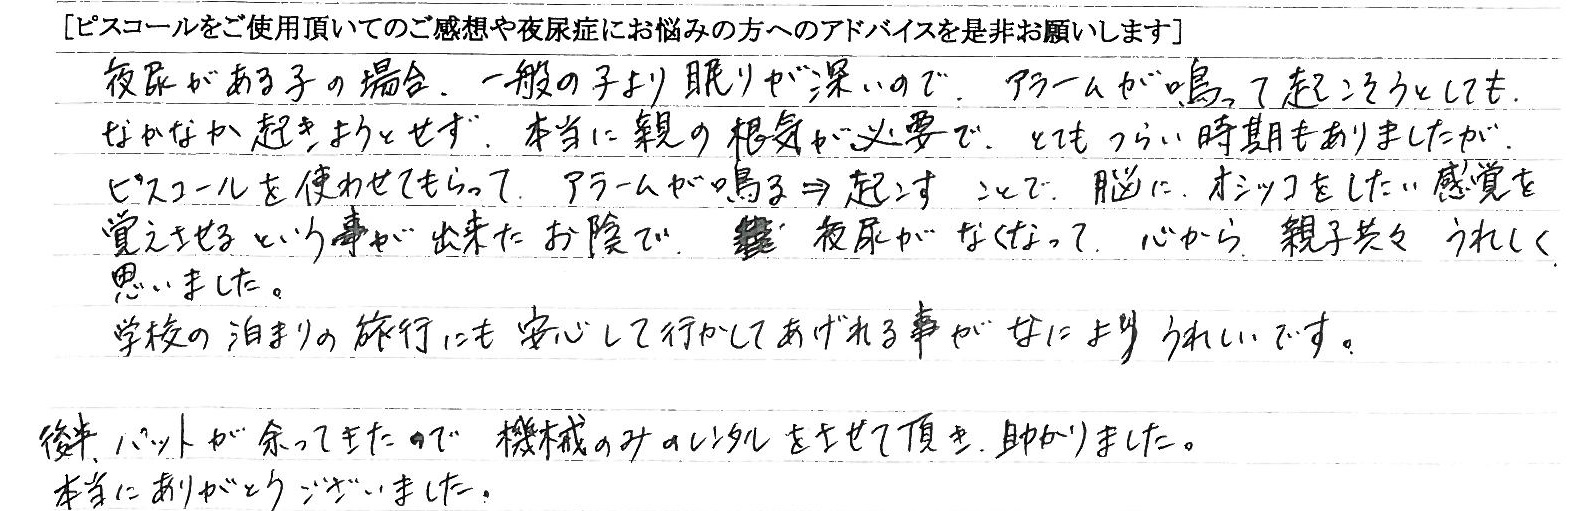 ［ピスコールをご使用頂いてのご感想や夜尿症にお悩みの方へのアドバイスを是非お願いします］
夜尿がある子の場合、一般の子より眠りが深いので、アラームが鳴って起こそうとしても、
なかなか起きようとせず、本当に親の根気が必要で、とてもつらい時期もありましたが、
ピスコールを使わせてもらって、アラームが鳴る⇒起こすことで、脳に、オシッコをしたい感覚を
覚えさせるという事が出来たお陰で、夜尿がなくなって、心から、親子共々うれしく
思いました。
学校の泊まりの旅行にも安心して行かしてあげれる事がなによりうれしいです。
後半、パットが余ってきたので機械のみのレンタルをさせて頂き、助かりました。
本当にありがとうございました。